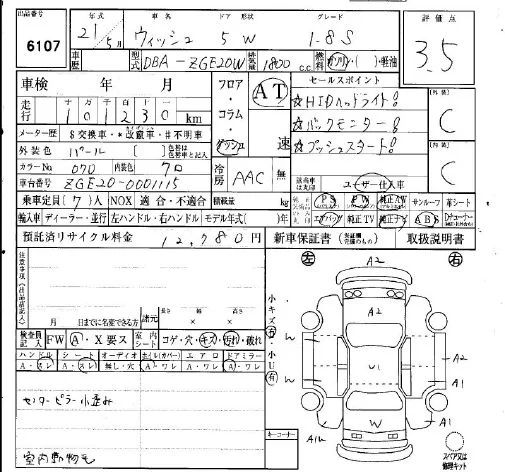 出品番号 6107
年式 21年5月
車名 ウィッシュ
ドア 形状 5 W
グレード 1.8S
評価点 3.5
車歴
型式 DBA-ZGE20W
排気量 1800 c.c.
燃料 ガソリン・軽油
車検 年 月
走行 十万 万 千 百 十
1 0 1 2 3 0 km
メーター歴 $交換車・*改竄車・#不明車
外装色 パール
カラーNo 070 内装色 クロ
車台番号 ZGE20-0001115
フロア・コラム・
AT
速
冷房 AAC 無
セールスポイント
☆HIDヘッドライト!
☆バックモニター!
☆プッシュスタート!
ユーザー仕入車
外装 C
内装 C
乗車定員(7)人 NOX 適合・不適合 積載量 kg
PS PW 純正AW サンルーフ 革シート
輸入車 ディーラー・並行 左ハンドル・右ハンドル モデル年式( )年
エアバッグ 純正TV 純正ナビ ABS
預託済リサイクル料金 12,780円
新車保証書 取扱説明書
注意事項
月 日までに名変できる方
諸元 長さ × 幅 × 高さ
検査員記入 FW A・X要ス
室内シート コゲ・穴・キズ・汚れ・破れ
ハンドル シート オーディオ ホイル(カバー) エアロ ドアミラー
A・スレ A・スレ 無し・穴 A・ワレ A・ワレ A・ワレ
センターピラー小歪み
室内動物毛
左 右
小キズ有・小U有
A2
A2
ん
ん
U1
A2
A1
W
A1
キーコーナー
スペアタイヤ又は修理キット